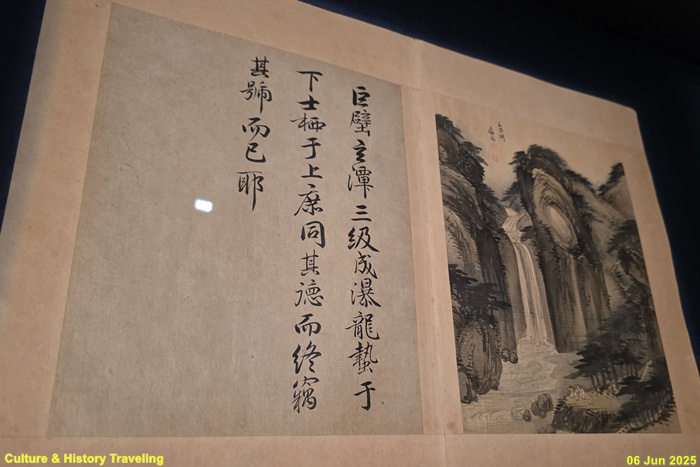 巨壁玄潭三級成瀑龍蟄于
下士栖于上庶同其德而終竊
其號而已耶
Culture & History Traveling
06 Jun 2025